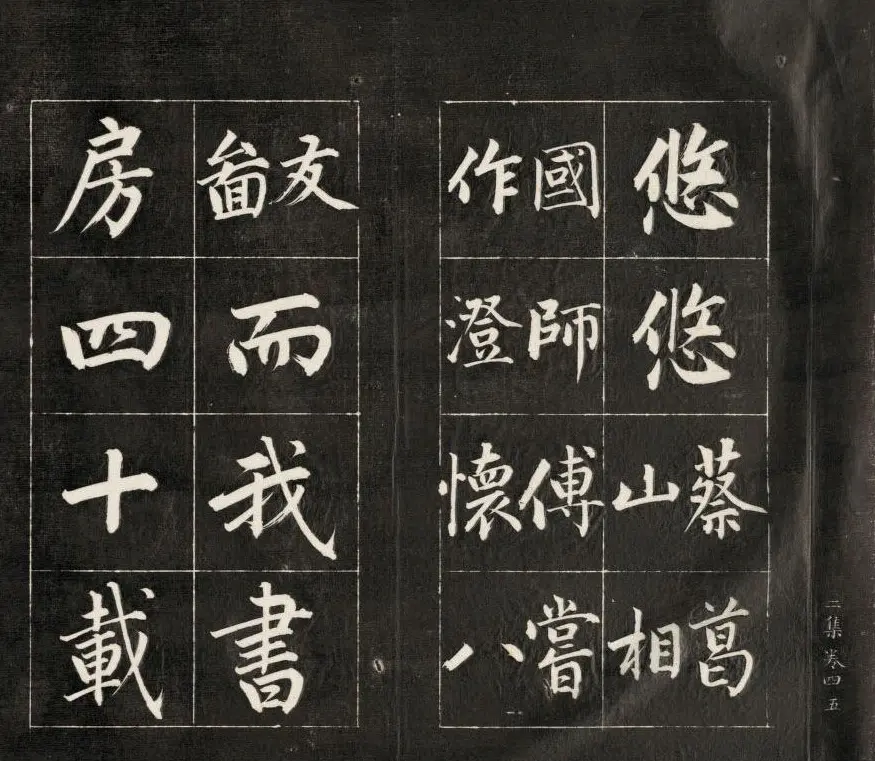 悠悠
蔡葛
山相
國師傅嘗
作澄懷八
友啚
而我書
房四十載
二集 卷四 五